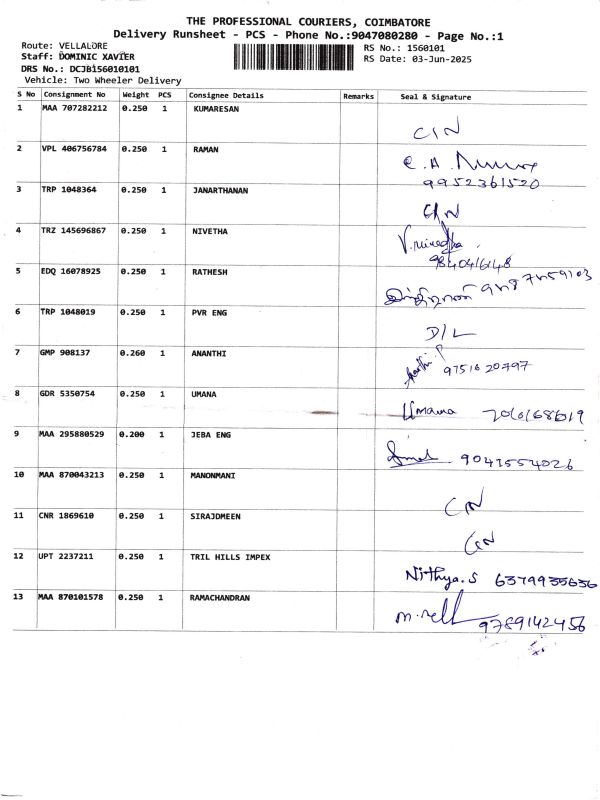 THE PROFESSIONAL COURIERS, COIMBATORE
Delivery Runsheet - PCS - Phone No.:9047080280 - Page No.:1
Route: VELLALORE
RS No.: 1560101
Staff: DOMINIC XAVIER
RS Date: 03-Jun-2025
DRS No.: DCJB156010101
Vehicle: Two Wheeler Delivery
S No Consignment No Weight PCS Consignee Details Remarks Seal & Signature
1 MAA 707282212 0.250 1 KUMARESAN
C/N
2 VPL 406756784 0.250 1 RAMAN
9952361520
3 TRP 1048364 0.250 1 JANARTHANAN
C/N
4 TRZ 145696867 0.250 1 NIVETHA
V.nivedha
9840416148
5 EDQ 16078925 0.250 1 RATHESH
6 TRP 1048019 0.250 1 PVR ENG
D/L
7 GMP 908137 0.260 1 ANANTHI
9751620797
8 GDR 5350754 0.250 1 UMANA
Umana
9 MAA 295880529 0.200 1 JEBA ENG
9041554026
10 MAA 870043213 0.250 1 MANONMANI
C/N
11 CNR 1869610 0.250 1 SIRAJDMEEN
C/N
12 UPT 2237211 0.250 1 TRIL HILLS IMPEX
Nithya.S 6379935636
13 MAA 870101578 0.250 1 RAMACHANDRAN
9789142456